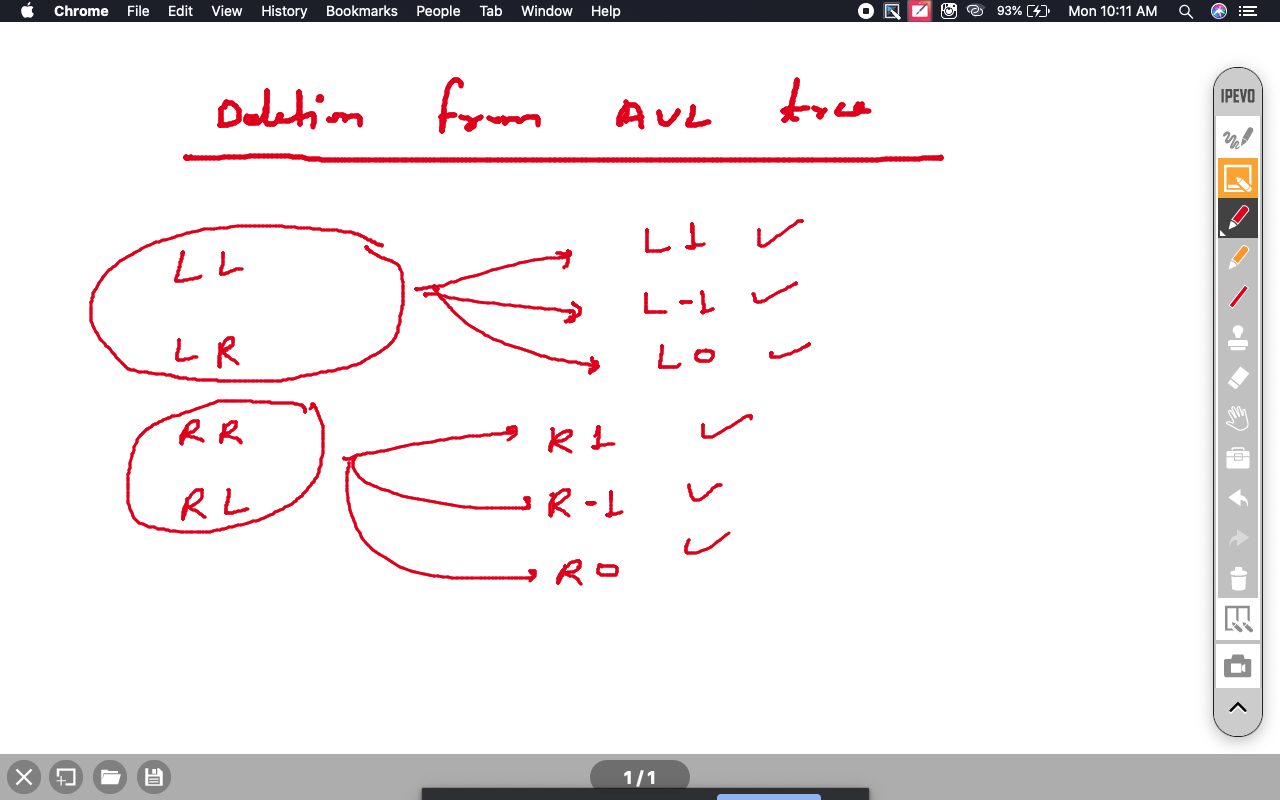 Chrome File Edit View History Bookmarks People Tab Window Help 93% Mon 10:11 AM
IPEVO
Deletion from AVL tree
LL
LR
L 1
L -1
L 0
RR
RL
R 1
R -1
R 0
1/1